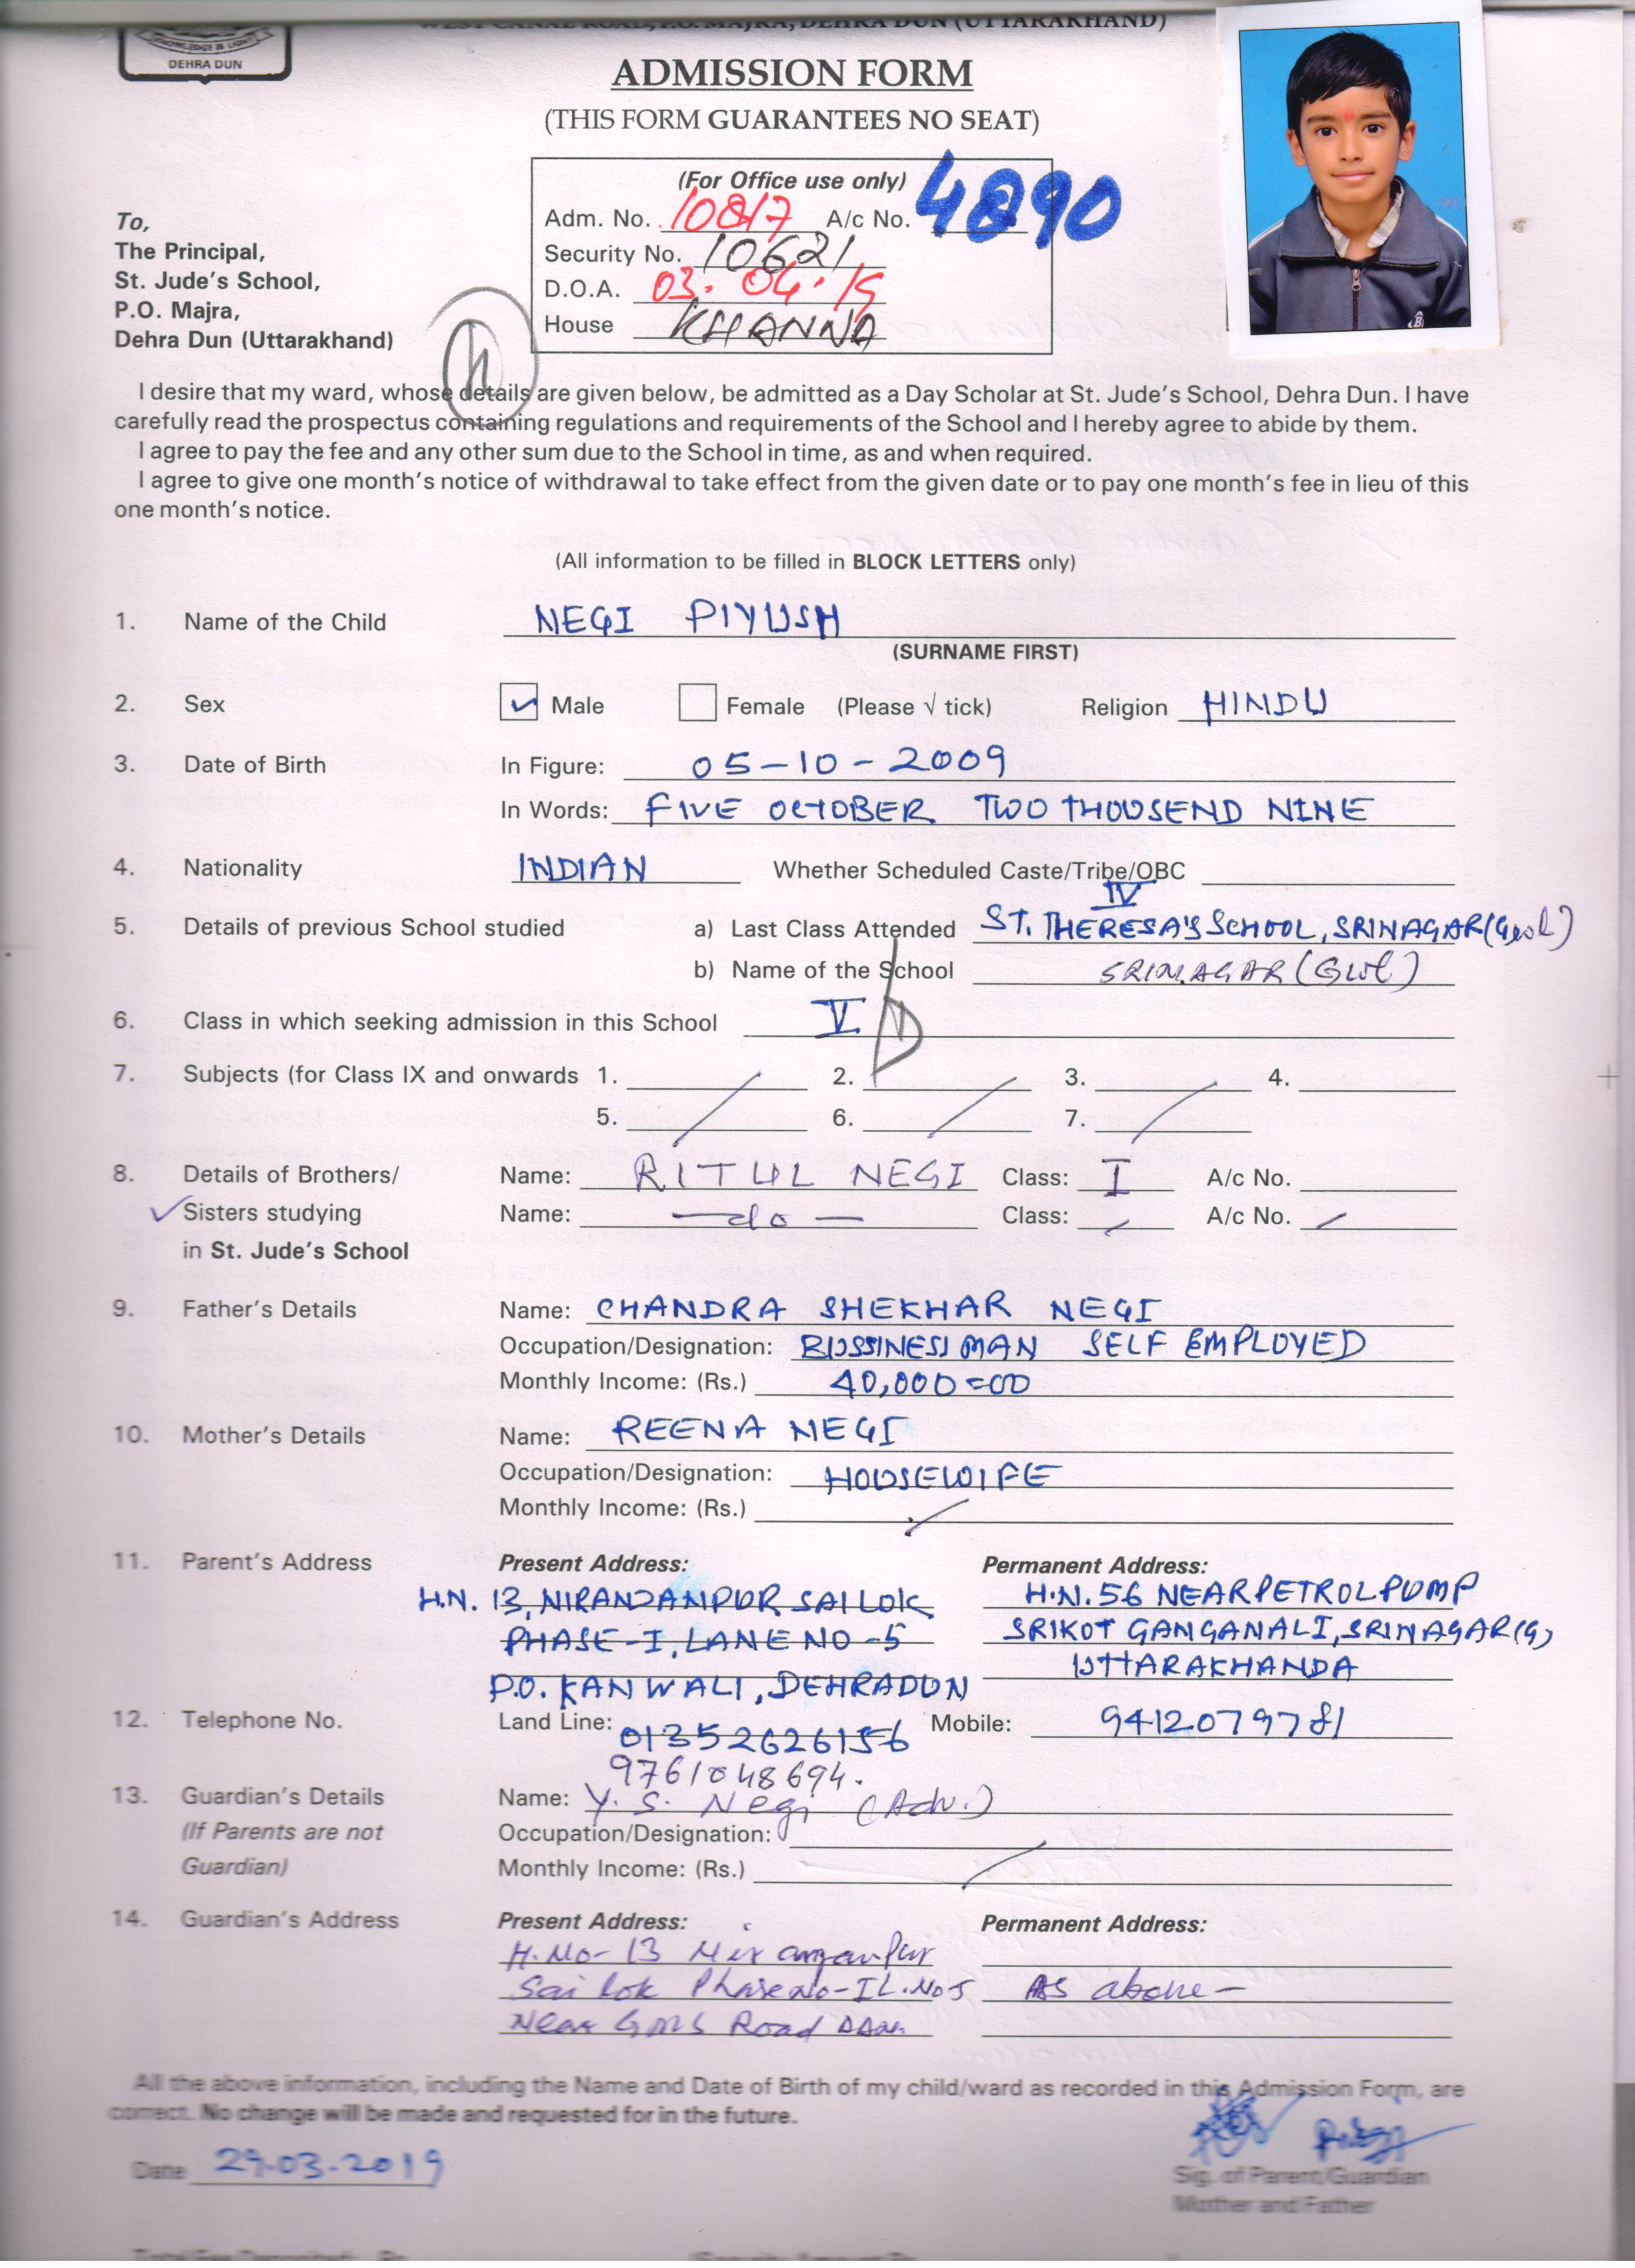 WEST CANAL ROAD, P.O. MAJRA, DEHRA DUN (UTTARAKHAND)
KNOWLEDGE IS LIGHT
DEHRA DUN
ADMISSION FORM
(THIS FORM GUARANTEES NO SEAT)
(For Office use only)
Adm. No. 10817 A/c No. 4890
Security No. 10621
D.O.A. 03.04.19
House KHANNA
To,
The Principal,
St. Jude's School,
P.O. Majra,
Dehra Dun (Uttarakhand)
I desire that my ward, whose details are given below, be admitted as a Day Scholar at St. Jude's School, Dehra Dun. I have
carefully read the prospectus containing regulations and requirements of the School and I hereby agree to abide by them.
I agree to pay the fee and any other sum due to the School in time, as and when required.
I agree to give one month's notice of withdrawal to take effect from the given date or to pay one month's fee in lieu of this
one month's notice.
(All information to be filled in BLOCK LETTERS only)
1. Name of the Child NEGI PIYUSH
(SURNAME FIRST)
2. Sex Male Female (Please √ tick) Religion HINDU
3. Date of Birth In Figure: 05-10-2009
In Words: FIVE OCTOBER TWO THOUSEND NINE
4. Nationality INDIAN Whether Scheduled Caste/Tribe/OBC
IV
5. Details of previous School studied a) Last Class Attended ST. THERESA'S SCHOOL, SRINAGAR
b) Name of the School SRINAGAR (Gwl)
6. Class in which seeking admission in this School V D
7. Subjects (for Class IX and onwards 1. 2. 3. 4.
5. 6. 7.
8. Details of Brothers/ Name: RITUL NEGI Class: I A/c No.
Sisters studying Name: —do— Class: A/c No.
in St. Jude's School
9. Father's Details Name: CHANDRA SHEKHAR NEGI
Occupation/Designation: BUSSINESSMAN SELF EMPLOYED
Monthly Income: (Rs.) 40,000=00
10. Mother's Details Name: REENA NEGI
Occupation/Designation: HOUSEWIFE
Monthly Income: (Rs.)
11. Parent's Address Present Address: Permanent Address:
H.N. 13, NIRANJANPUR SAI LOK H.N. 56 NEAR PETROL PUMP
PHASE-I, LANE NO-5 SRIKOT GANGANALI, SRINAGAR(G)
P.O. KANWALI, DEHRADUN UTTARAKHANDA
12. Telephone No. Land Line: 01352626156 Mobile: 9412079781
9761048694.
13. Guardian's Details Name: Y. S. Negi (Adv.)
(If Parents are not Occupation/Designation:
Guardian) Monthly Income: (Rs.)
14. Guardian's Address Present Address: Permanent Address:
H.No-13 Niranjanpur
Sai Lok Phase No-I L.No5 As above-
Near GMS Road DDun
All the above information, including the Name and Date of Birth of my child/ward as recorded in this Admission Form, are
correct. No change will be made and requested for in the future.
Date 29.03.2019
Sig. of Parent/Guardian
Mother and Father